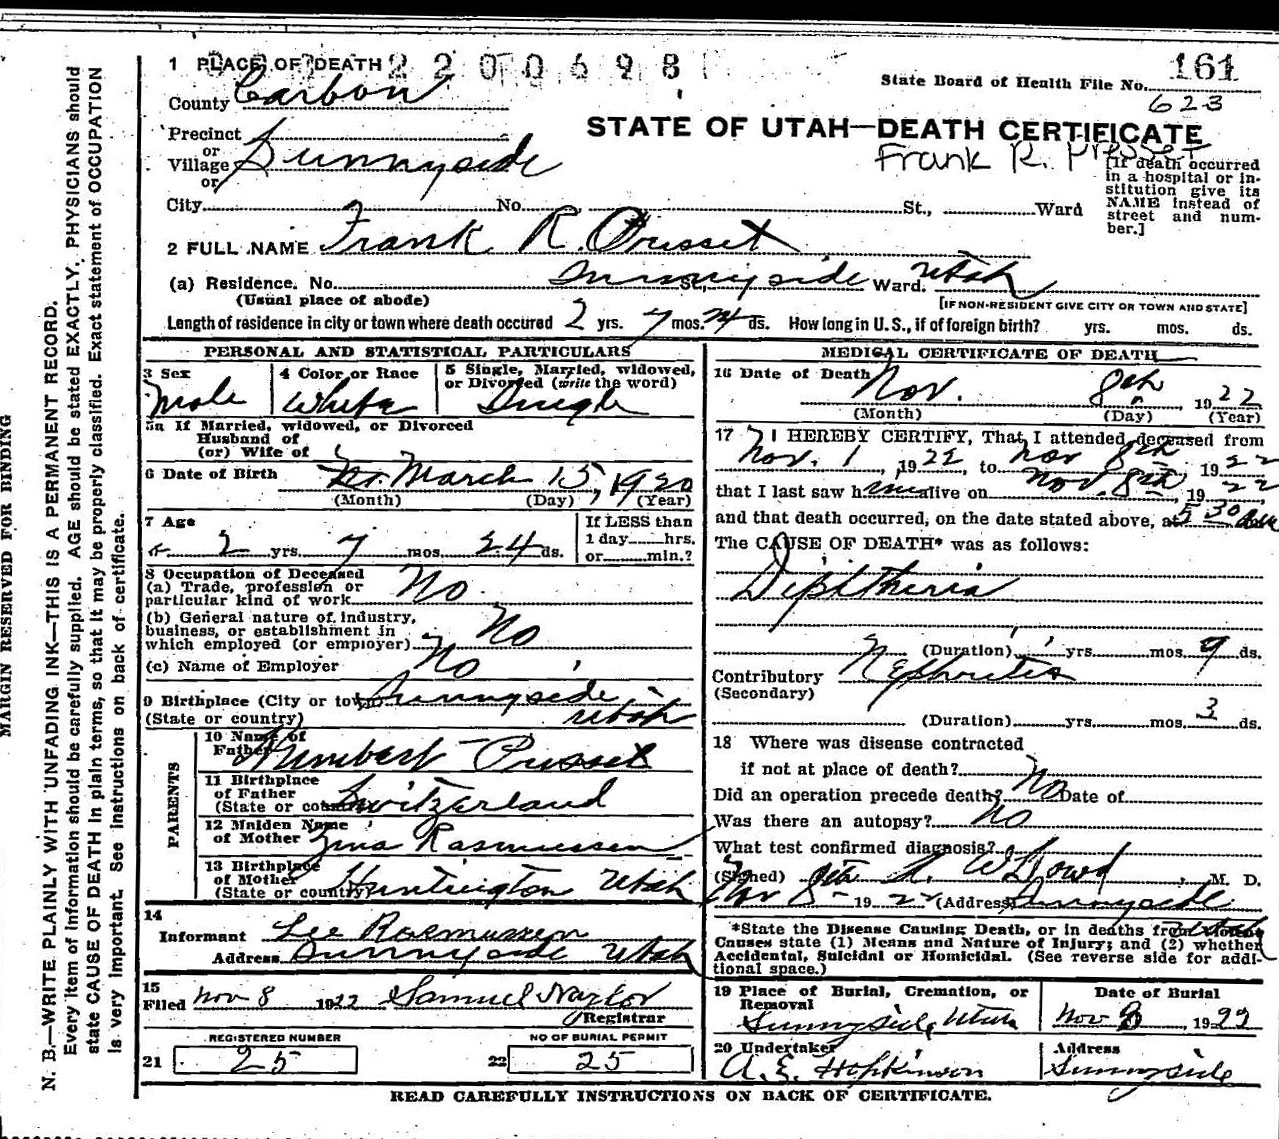 1 PLACE OF DEATH 2200698
State Board of Health File No. 161
County Carbon
623
STATE OF UTAH—DEATH CERTIFICATE
Precinct
or
Village Sunnyside
or
Frank R. Prusset
[If death occurred in a hospital or in-
stitution give its
NAME instead of
street and num-
ber.]
City No. St., Ward
2 FULL NAME Frank R. Prusset
(a) Residence. No. Sunnyside St., Ward. Utah
(Usual place of abode) [IF NON-RESIDENT GIVE CITY OR TOWN AND STATE]
Length of residence in city or town where death occured 2 yrs. 7 mos. 24 ds. How long in U. S., if of foreign birth? yrs. mos. ds.
PERSONAL AND STATISTICAL PARTICULARS
3 Sex Male
4 Color or Race White
5 Single, Married, widowed,
or Divorced (write the word)
Single
5a If Married, widowed, or Divorced
Husband of
(or) Wife of
6 Date of Birth March 15, 1920
(Month) (Day) (Year)
7 Age
2 yrs. 7 mos. 24 ds.
If LESS than
1 day hrs.
or min.?
8 Occupation of Deceased
(a) Trade, profession or
particular kind of work No
(b) General nature of industry,
business, or establishment in
which employed (or employer) No
(c) Name of Employer No
9 Birthplace (City or town) Sunnyside
(State or country) Utah
PARENTS
10 Name of
Father Humbert Prusset
11 Birthplace
of Father
(State or country) Switzerland
12 Maiden Name
of Mother Zina Rasmussen
13 Birthplace
of Mother
(State or country) Huntington Utah
14
Informant Lee Rasmussen
Address Sunnyside Utah
15
Filed Nov 8 1922 Samuel Naylor
Registrar
REGISTERED NUMBER NO OF BURIAL PERMIT
21 25 22 25
MEDICAL CERTIFICATE OF DEATH
16 Date of Death Nov. 8th, 1922
(Month) (Day) (Year)
17 I HEREBY CERTIFY, That I attended deceased from
Nov. 1, 1922 to Nov 8th, 1922
that I last saw him alive on Nov. 8th, 1922
and that death occurred, on the date stated above, at 5 30
The CAUSE OF DEATH* was as follows:
Diphtheria
(Duration) yrs. mos. 9 ds.
Contributory Nephritis
(Secondary)
(Duration) yrs. mos. 3 ds.
18 Where was disease contracted
if not at place of death? No
Did an operation precede death? No Date of
Was there an autopsy? No
What test confirmed diagnosis?
(Signed) A. W. Dowd, M. D.
Nov 8 1922 (Address) Sunnyside
*State the Disease Causing Death, or in deaths from
Causes state (1) Means and Nature of Injury; and (2) whether
Accidental, Suicidal or Homicidal. (See reverse side for addi-
tional space.)
19 Place of Burial, Cremation, or
Removal
Sunnyside, Utah
Date of Burial
Nov 8, 1922
20 Undertaker
A. E. Hopkinson
Address
Sunnyside
READ CAREFULLY INSTRUCTIONS ON BACK OF CERTIFICATE.
MARGIN RESERVED FOR BINDING
N. B.—WRITE PLAINLY WITH UNFADING INK—THIS IS A PERMANENT RECORD.
Every item of information should be carefully supplied. AGE should be stated EXACTLY. PHYSICIANS should
state CAUSE OF DEATH in plain terms, so that it may be properly classified. Exact statement of OCCUPATION
is very important. See instructions on back of certificate.